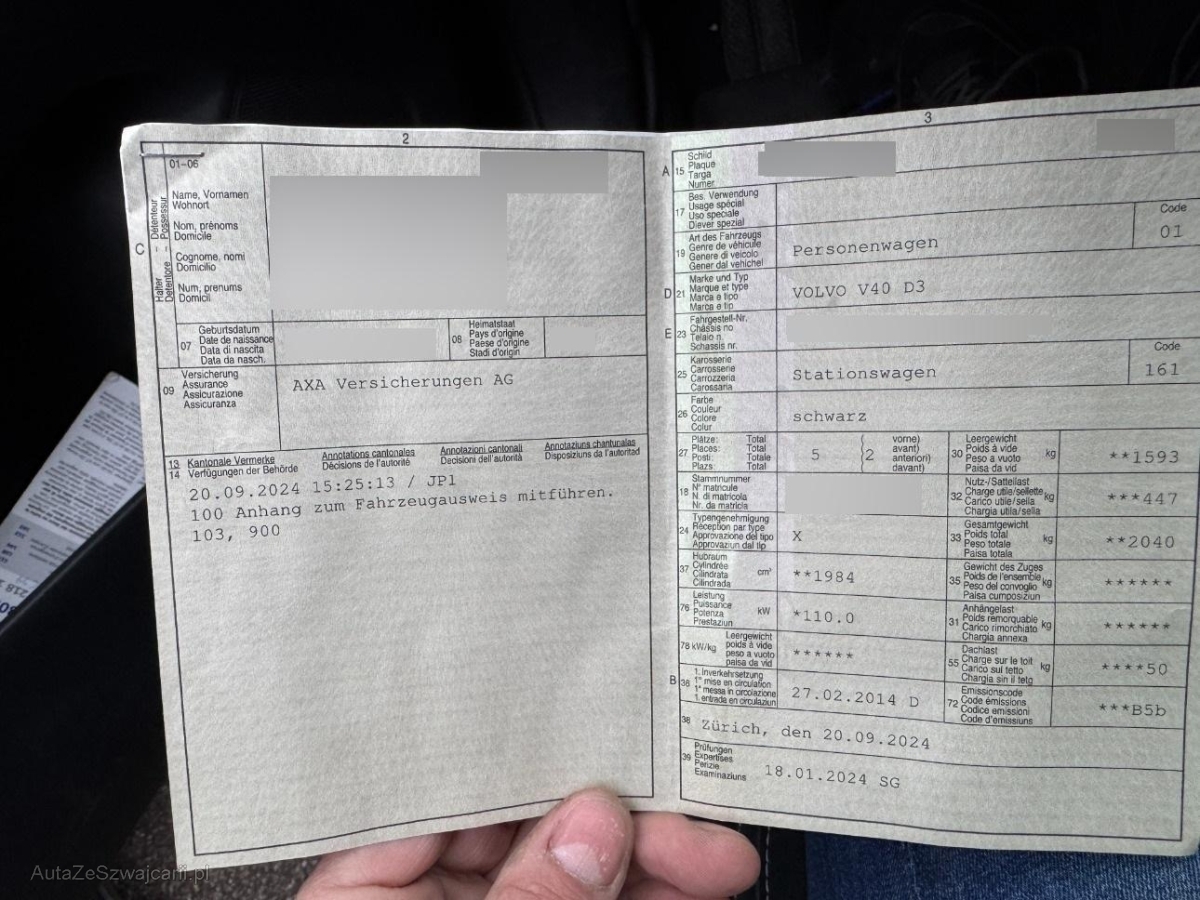 2
01-06
C
Halter - Détenteur
Detentore - Possessur
Name, Vornamen
Wohnort
Nom, prénoms
Domicile
Cognome, nomi
Domicilio
Num, prenums
Domicil
07
Geburtsdatum
Date de naissance
Data di nascita
Data da nasch.
08
Heimatstaat
Pays d'origine
Paese d'origine
Stadi d'origin
09
Versicherung
Assurance
Assicurazione
Assicuranza
AXA Versicherungen AG
13 Kantonale Vermerke Annotations cantonales Annotazioni cantonali Annotaziuns chantunalas
14 Verfügungen der Behörde Décisions de l'autorité Decisioni dell'autorità Disposiziuns da l'autoritad
20.09.2024 15:25:13 / JP1
100 Anhang zum Fahrzeugausweis mitführen.
103, 900
3
A 15
Schild
Plaque
Targa
Numer
17
Bes. Verwendung
Usage spécial
Uso speciale
Diever spezial
19
Art des Fahrzeugs
Genre de véhicule
Genere di veicolo
Gener dal vehichel
Personenwagen
Code
01
D 21
Marke und Typ
Marque et type
Marca e tipo
Marca e tip
VOLVO V40 D3
E 23
Fahrgestell-Nr.
Châssis no
Telaio n.
Schassis nr.
25
Karosserie
Carrosserie
Carrozzeria
Carossaria
Stationswagen
Code
161
26
Farbe
Couleur
Colore
Colur
schwarz
27
Plätze: Total
Places: Total
Posti: Totale
Plazs: Total
5 2
vorne)
avant)
anteriori)
davant)
30
Leergewicht
Poids à vide
Peso a vuoto
Paisa da vid
kg
**1593
18
Stammnummer
N° matricule
N. di matricola
Nr. da matricla
32
Nutz-/Sattellast
Charge utile/sellette
Carico utile/sella
Chargia utila/sella
kg
***447
24
Typengenehmigung
Réception par type
Approvazione del tipo
Approvaziun dal tip
X
33
Gesamtgewicht
Poids total
Peso totale
Paisa totala
kg
**2040
37
Hubraum
Cylindrée
Cilindrata
Cilindrada
cm³
**1984
35
Gewicht des Zuges
Poids de l'ensemble
Peso del convoglio
Paisa cumposiziun
kg
******
76
Leistung
Puissance
Potenza
Prestaziun
kW
*110.0
31
Anhängelast
Poids remorquable
Carico rimorchiato
Chargia annexa
kg
******
78 kW/kg
Leergewicht
poids à vide
peso a vuoto
paisa da vid
******
55
Dachlast
Charge sur le toit
Carico sul tetto
Chargia sin il tetg
kg
****50
B 36
1. Inverkehrsetzung
1re mise en circulation
1a messa in circolazione
1. entrada en circulaziun
27.02.2014 D
72
Emissionscode
Code émissions
Codice emissioni
Code d'emissiuns
***B5b
38
Zürich, den 20.09.2024
39
Prüfungen
Expertises
Perizie
Examinaziuns
18.01.2024 SG
AutaZeSzwajcarii.pl